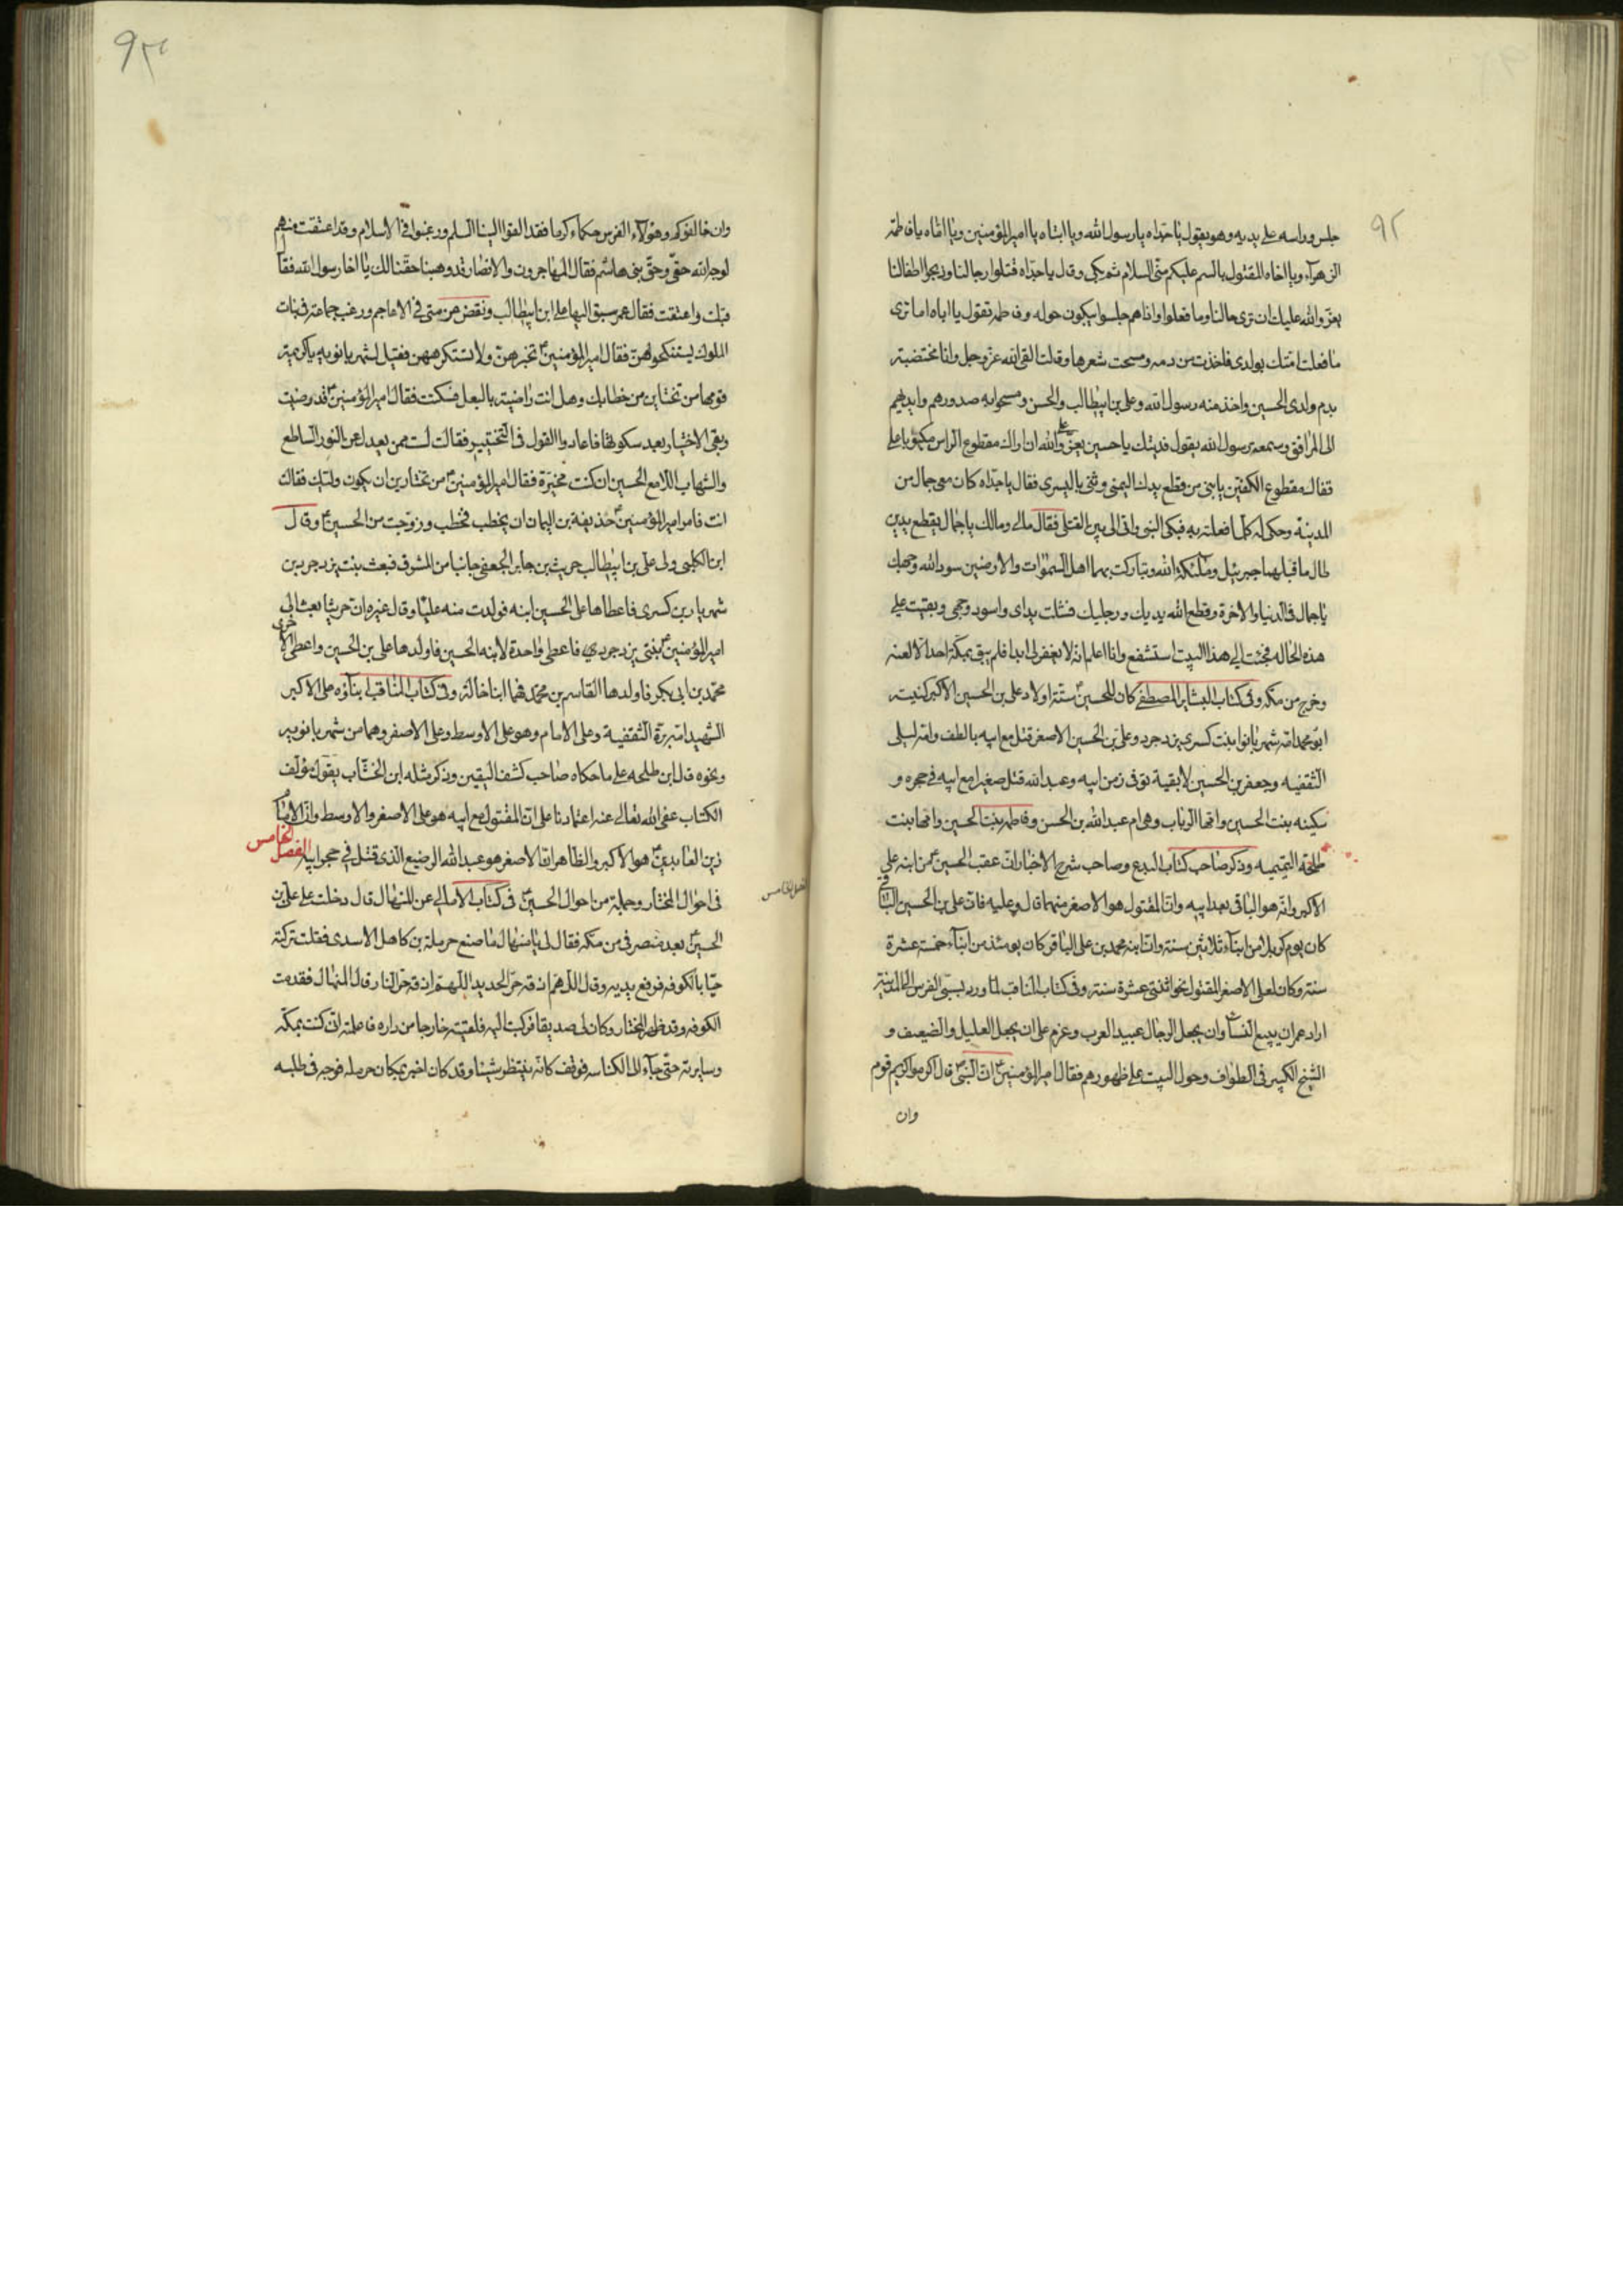 ٩٢
جلس وراسه على يديه وهو يقول يا جداه يا رسول الله ويا ابتاه يا امير المؤمنين ويا اماه يا فاطمة
الزهرآء ويا اخاه المقتول بالسم عليكم منى السلام ثم بكى وقال يا جداه قتلوا رجالنا وذبحوا اطفالنا
يعز والله عليك ان ترى حالنا وما فعلوا واذا هم جلسوا يبكون حوله وفاطمة تقول يا اباه اما ترى
ما فعلت امتك بولدى فاخذت من دمه ومسحت شعرها وقالت القى الله عز وجل وانا مختضبة
بدم ولدى الحسين واخذ منه رسول الله وعلى بن ابيطالب والحسن ومسحوا به صدورهم وايديهم
الى المرافق وسمعت رسول الله يقول فديتك يا حسين يعز والله على ان اراك مقطوع الراس
مقطوع الكفين يا بنى من قطع يدك اليمنى وثنى باليسرى فقال يا جداه كان معى جمال من
المدينة وحكى له كلما فعلته به فبكى النبى واتى الى بين القتلى فقال مالى ومالك يا جمال يقطع يدين
طال ما قبلهما جبرئيل وملئكة الله وتباركت بهما اهل السموات والارضين سود الله وجهك
يا جمال فى الدنيا والاخرة وقطع الله يديك ورجليك فشلت يداى واسود وجهى وبقيت على
هذه الحاله فجئت الى هذا البيت استشفع وانا اعلم انه لا يغفر لى ابدا فلم يبق بمكة احد الا لعنه
وخرج من مكه وفى كتاب البشاير المصطفى كان للحسين ستة اولاد على بن الحسين الاكبر كنيته
ابو محمد امه شهر بانوا بنت كسرى يزدجرد وعلى بن الحسين الاصغر قتل مع ابيه بالطف وامه ليلى
الثقفيه وجعفر بن الحسين لا بقية توفى زمن ابيه وعبد الله قتل صغيرا مع ابيه فى حجره و
سكينه بنت الحسين وامها الرباب وهى ام عبد الله بن الحسن وفاطمة بنت الحسين وامها بنت
طلحة التيميه وذكر صاحب كتاب البدع وصاحب شرح الاخبار ان عقب الحسين من ابنه على
الاكبر وانه هو الباقى بعد ابيه وان المقتول هو الاصغر منهما قال وعليه فان على بن الحسين الباقى
كان يوم كربلا من ابنآء ثلاثين سنة وان ابنه محمد بن على الباقر كان يومئذ من ابنآء خمسة عشرة
سنة وكان لعلى الاصغر المقتول نحو اثنتى عشرة سنة وفى كتاب المناقب لما ورد بسبى الفرس الى المدينة
اراد عمر ان يبيع النسآء وان يجعل الرجال عبيد العرب وعزم على ان يجعل العليل والضعيف و
الشيخ الكبير فى الطواف وحول البيت على ظهورهم فقال امير المؤمنين ان النبى قال اكرموا كريم قوم
وان
٩٣
وان خالفوكم وهؤلآء الفرس حكماء كرما فقد القوا الينا السلم ورغبوا فى الاسلام وقد اعتقت منهم
لوجه الله حقى وحق بنى هاشم فقال المهاجرون والانصار قد وهبنا حقنا لك يا اخا رسول الله فقال
قبلت واعتقت فقال عمر سبق اليها على ابن ابيطالب ونقض عزمتى فى الاعاجم ورغب جماعة فى بنات
الملوك ليستنكحوهن فقال امير المؤمنين تخيرهن ولا تستكرههن فقيل لشهر بانويه يا كريمة
قومها من تختارين من خطابك وهل انت راضيته بالبعل فسكتت فقال امير المؤمنين قد رضيت
وبقى الاختيار بعد سكوتها فاعادوا القول فى التخيير فقالت لست ممن يعدل عن النور الساطع
والشهاب اللامع الحسين ان كنت مخيرة فقال امير المؤمنين من تختارين ان يكون وليك فقالت
انت فامر امير المؤمنين حذيفة بن اليمان ان يخطب فخطب وزوجت من الحسين وقال
ابن الكلبى ولى على بن ابيطالب حريث بن جابر الجعفى جانبا من المشرق فبعث بنت يزدجرد بن
شهريار بن كسرى فاعطاها على الحسين ابنه فولدت منه عليا وقال غيره ان حريثا بعث الى
امير المؤمنين ببنتى يزدجرد فاعطى واحدة لابنه الحسين فاولدها على بن الحسين واعطى الاخرى
محمد بن ابى بكر فاولدها القاسم بن محمد فهما ابنا خالة وفى كتاب المناقب ابنآؤه على الاكبر
الشهيد امه برة الثقفية وعلى الامام وهو على الاوسط وعلى الاصغر وهما من شهر بانويه
ونحوه قال ابن طلحه على ما حكاه صاحب كشف اليقين وذكر مثله ابن الخشاب يقول مؤلف
الكتاب عفى الله تعالى عنه اعتمادنا على ان المقتول مع ابيه هو على الاصغر والاوسط وان الامام
زين العابدين هو الاكبر والظاهر ان الاصغر هو عبد الله الرضيع الذى قتل فى حجر ابيه الفصل الخامس
الفصل الخامس
فى احوال المختار وجملة من احوال الحسين فى كتاب الامالى عن المنهال قال دخلت على على بن
الحسين بعد منصرفى من مكه فقال لى يا منهال ما صنع حرملة بن كاهل الاسدى فقلت تركته
حيا بالكوفه فرفع يديه وقال اللهم اذقه حر الحديد اللهم اذقه حر النار قال المنهال فقدمت
الكوفه وقد ظهر المختار وكان لى صديقا فركبت اليه فلقيته خارجا من داره فاعلمته انى كنت بمكة
وسايرته حتى جآء الى الكناسه فوقف كانه ينتظر شيئا وقد كان اخبر بمكان حرمله فوجه فى طلبه